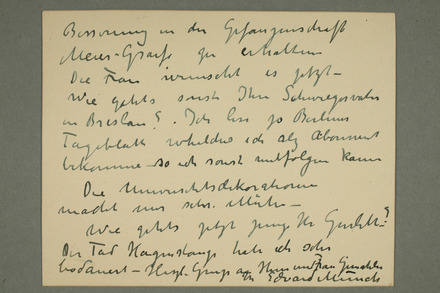 Besserung in der Gefangenschaft
Meier-Graefe zu erhalten
Die Frau wünscht es jetzt –
Wie gehts sonst Ihr Schwiegervater
in Breslau? . Ich lese ja Berliner
Tageblatt welches ich als Abonnent
bekomme – so ich sonst mitfolgen kann
Die Universitätsdekorationen
macht mir sehr Mühe –
Wie gehts jetzt junge Hr Gurlitt?
Der Tod Hagerstangs habe ich sehr
bedauert – Herzl. Gruss an Ihnen und Frau
Ihr Edvard Munch